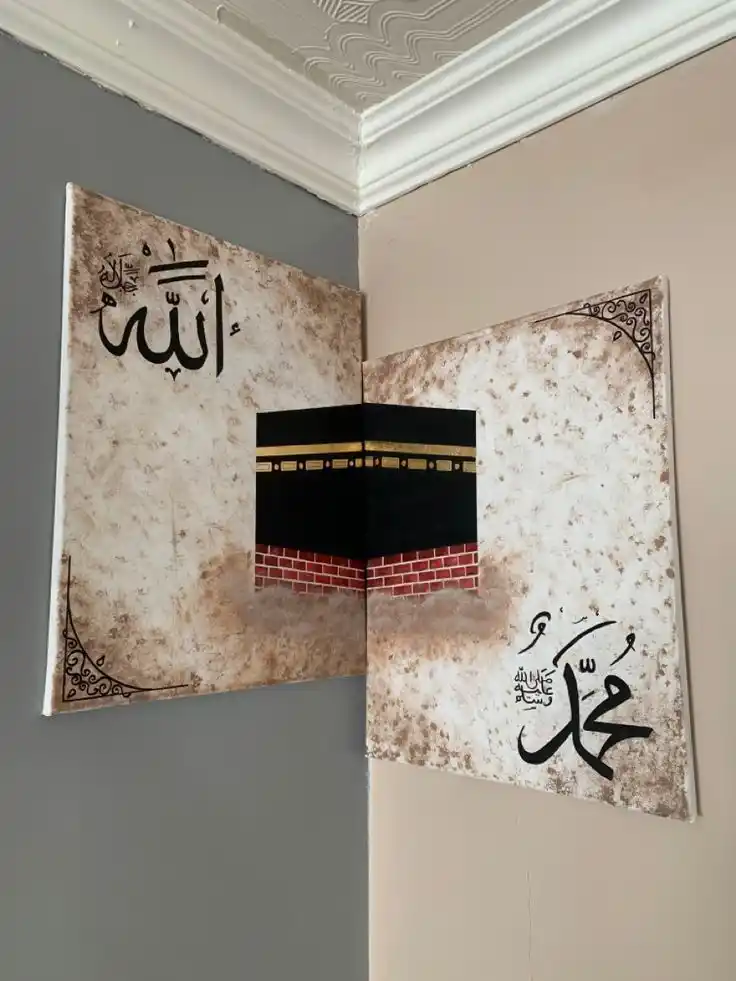 الله
جل جلاله
محمد
صلى الله
عليه
وسلم